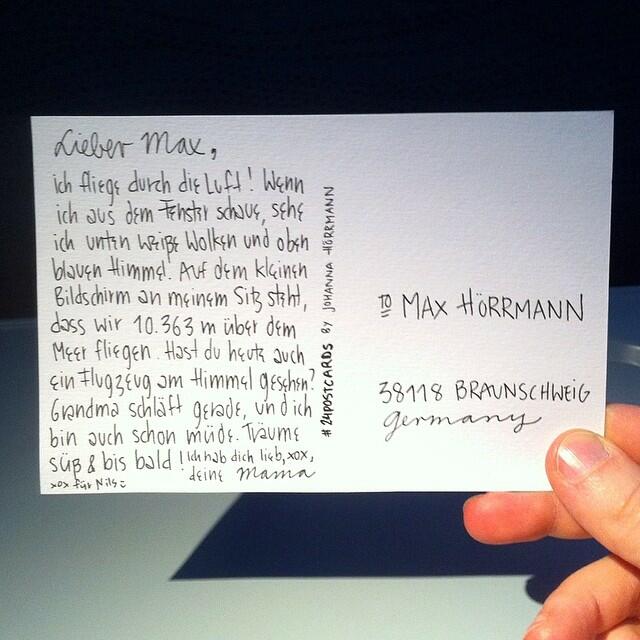 Lieber Max,
ich fliege durch die Luft! Wenn
ich aus dem Fenster schaue, sehe
ich unten weiße Wolken und oben
blauen Himmel. Auf dem kleinen
Bildschirm an meinem Sitz steht,
dass wir 10.363 m über dem
Meer fliegen. Hast du heute auch
ein Flugzeug am Himmel gesehen?
Grandma schläft gerade, und ich
bin auch schon müde. Träume
süß & bis bald! Ich hab dich lieb, xox,
deine Mama
xox für Nils :
#24POSTCARDS BY JOHANNA HÖRRMANN
TO MAX HÖRRMANN
38118 BRAUNSCHWEIG
germany